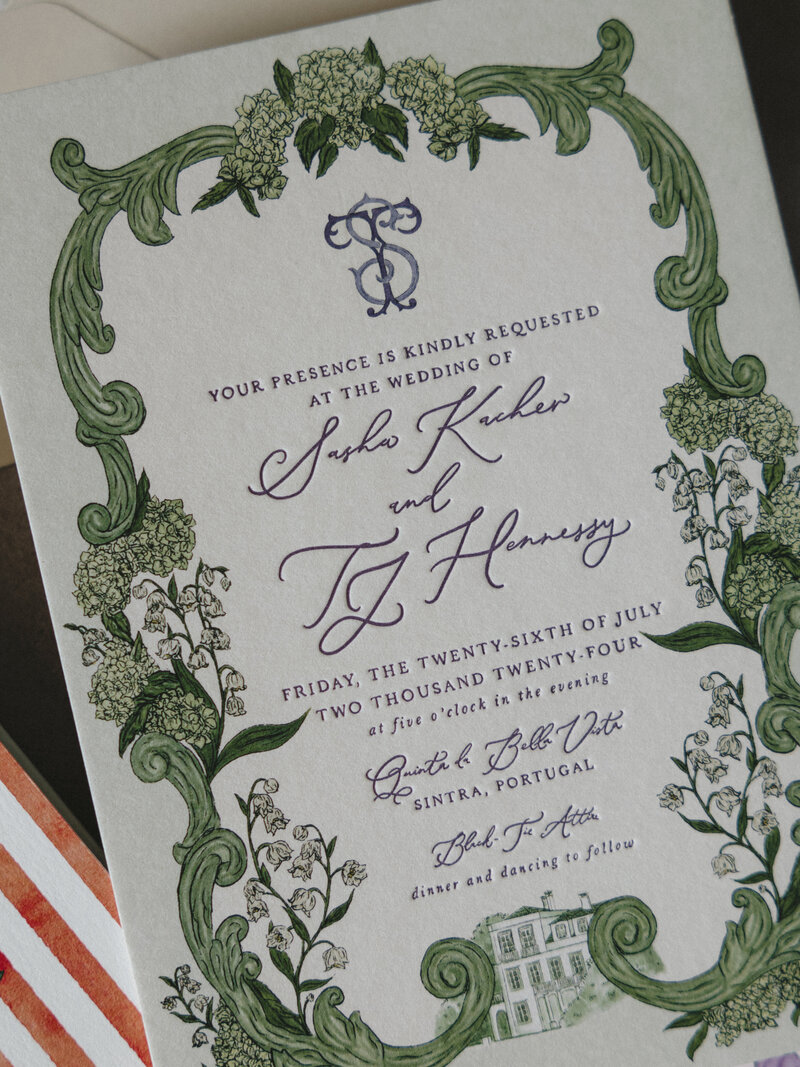 TS
YOUR PRESENCE IS KINDLY REQUESTED
AT THE WEDDING OF
Sasha Kacher
and
TJ Hennessy
FRIDAY, THE TWENTY-SIXTH OF JULY
TWO THOUSAND TWENTY-FOUR
at five o'clock in the evening
Quinta da Bella Vista
SINTRA, PORTUGAL
Black-Tie Attire
dinner and dancing to follow